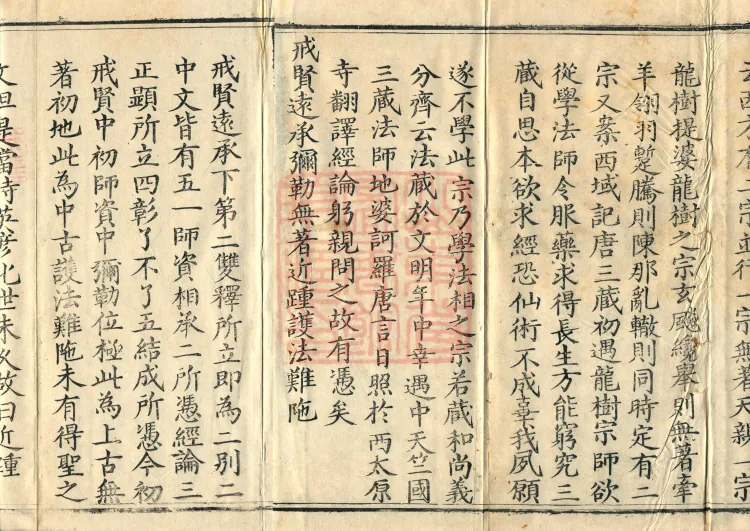 宗並行一宗無著天親一宗
龍樹提婆龍樹之宗玄飈纔舉則無著牽
羊翎羽蹔騰則陳那亂轍則同時定有二
宗又案西域記唐三藏初遇龍樹宗師欲
從學法師令服藥求得長生方能窮究三
藏自思本欲求經恐仙術不成辜我夙願
遂不學此宗乃學法相之宗若藏和尚義
分齊云法藏於文明年中幸遇中天竺國
三藏法師地婆訶羅唐言日照於西太原
寺翻譯經論躬親問之故有憑矣
戒賢遠承彌勒無著近踵護法難陁
戒賢遠承下第二雙釋所立即為二別二
中文皆有五一師資相承二所憑經論三
正顯所立四彰了不了五結成所憑今初
戒賢中初師資中彌勒位極此為上古無
著初地此為中古護法難陁未有得聖之
文但是當時英彥化世未久故曰近踵